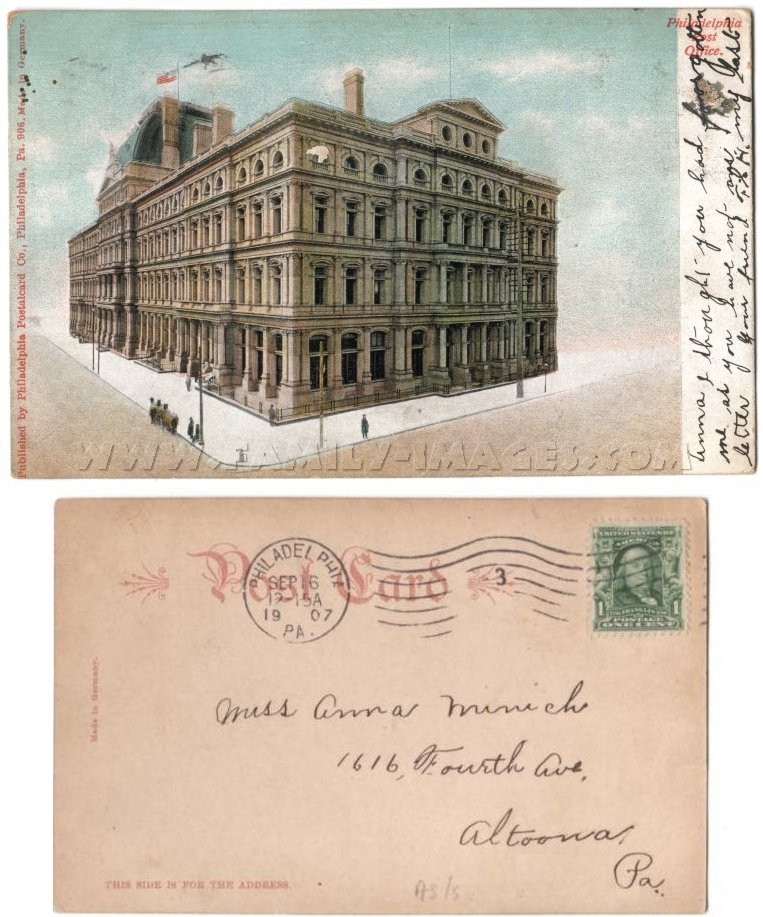 Philadelphia
Post
Office.
Published by Philadelphia Postalcard Co., Philadelphia, Pa. 906. Made in Germany.
Anna I thought you had forgotten
me as you have not my last
letter your friend
WWW.FAMILY-IMAGES.COM
Post Card
PHILADELPHIA
SEP 16
12-15A
1907
PA.
3
UNITED STATES OF
AMERICA
1 FRANKLIN 1
POSTAGE
ONE CENT
Made in Germany.
Miss Anna Minich
1616, Fourth Ave,
Altoona,
Pa.
THIS SIDE IS FOR THE ADDRESS.
As/s